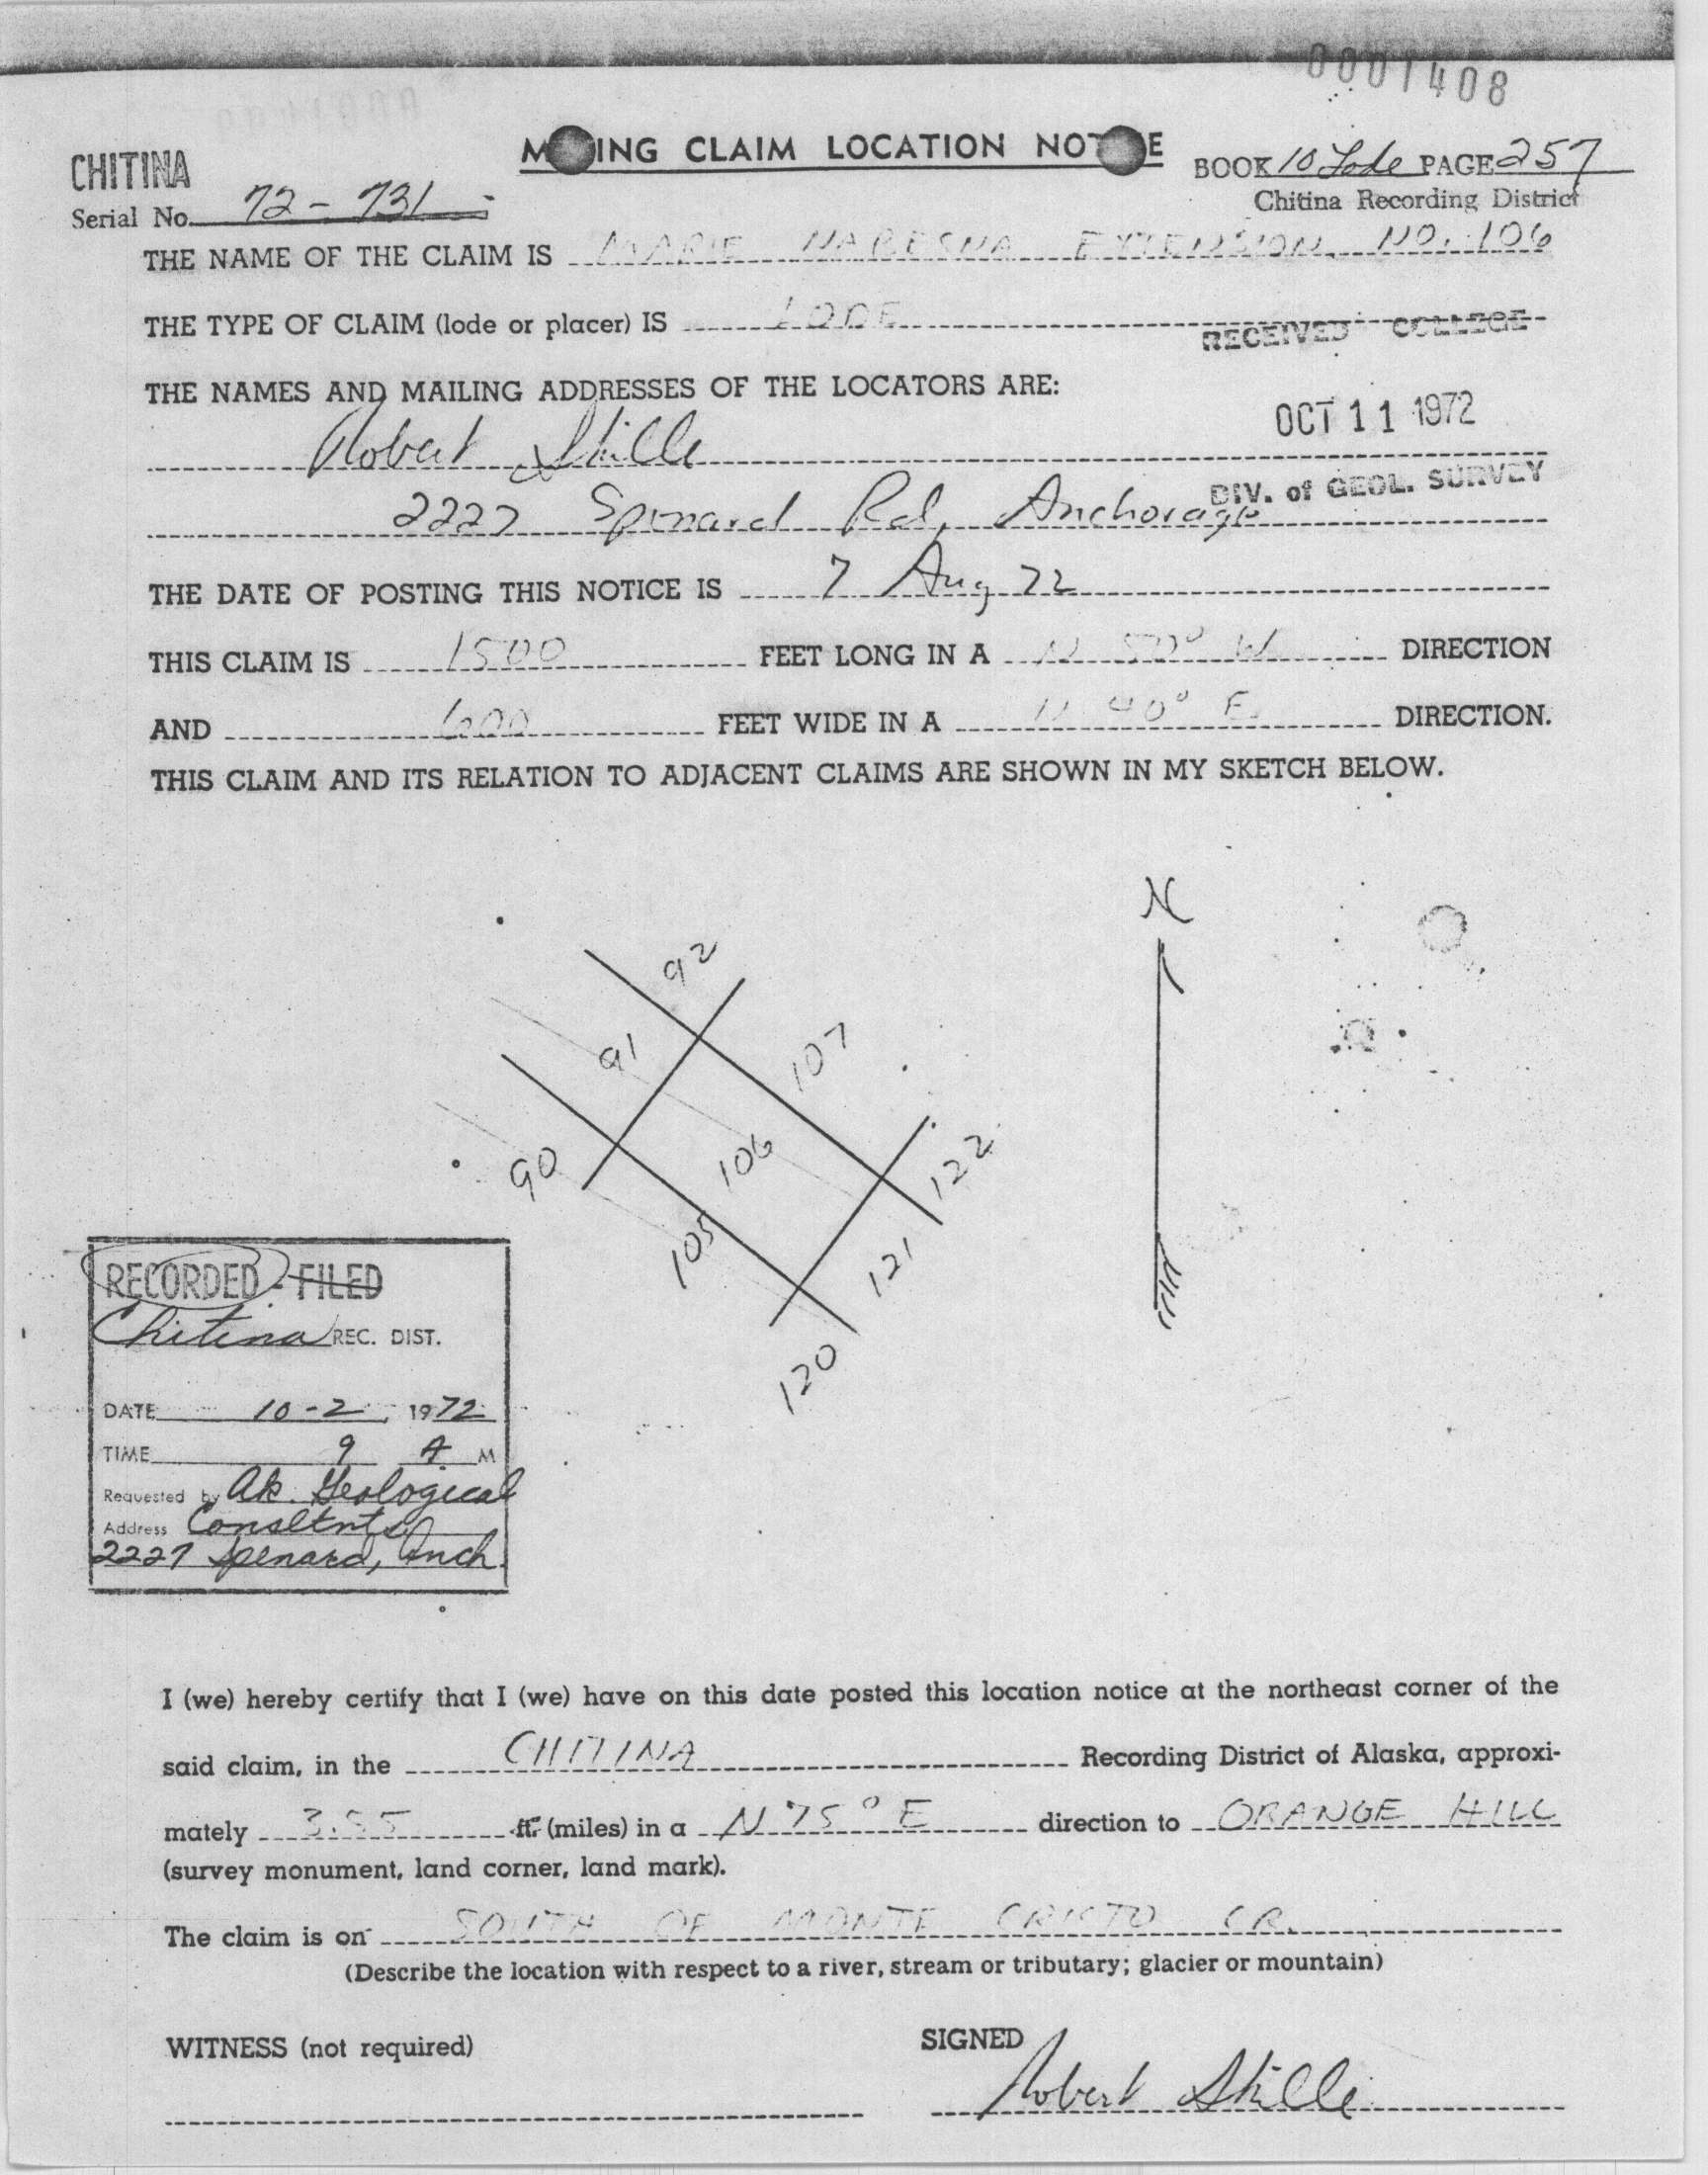 0001408
CHITINA
MINING CLAIM LOCATION NOTICE
BOOK 10 Lode PAGE 257
Serial No. 72-731
Chitina Recording District
THE NAME OF THE CLAIM IS MARIE NABESNA EXTENSION NO. 106
THE TYPE OF CLAIM (lode or placer) IS LODE
RECEIVED COLLEGE
THE NAMES AND MAILING ADDRESSES OF THE LOCATORS ARE:
OCT 11 1972
Robert Stille
DIV. of GEOL. SURVEY
2227 Spenard Rd, Anchorage
THE DATE OF POSTING THIS NOTICE IS 7 Aug 72
THIS CLAIM IS 1500 FEET LONG IN A N 50° W DIRECTION
AND 600 FEET WIDE IN A N 40° E DIRECTION.
THIS CLAIM AND ITS RELATION TO ADJACENT CLAIMS ARE SHOWN IN MY SKETCH BELOW.
N
92
91
107
90
106
122
105
121
120
RECORDED - FILED
Chitina REC. DIST.
DATE 10-2, 1972
TIME 9 A M
Requested by Ak. Geological
Address Consltnts
2227 Spenard, Anch.
I (we) hereby certify that I (we) have on this date posted this location notice at the northeast corner of the
said claim, in the CHITINA Recording District of Alaska, approxi-
mately 3.55 ft. (miles) in a N 75° E direction to ORANGE HILL
(survey monument, land corner, land mark).
The claim is on SOUTH OF MONTE CRISTO CR.
(Describe the location with respect to a river, stream or tributary; glacier or mountain)
WITNESS (not required)
SIGNED
Robert Stille